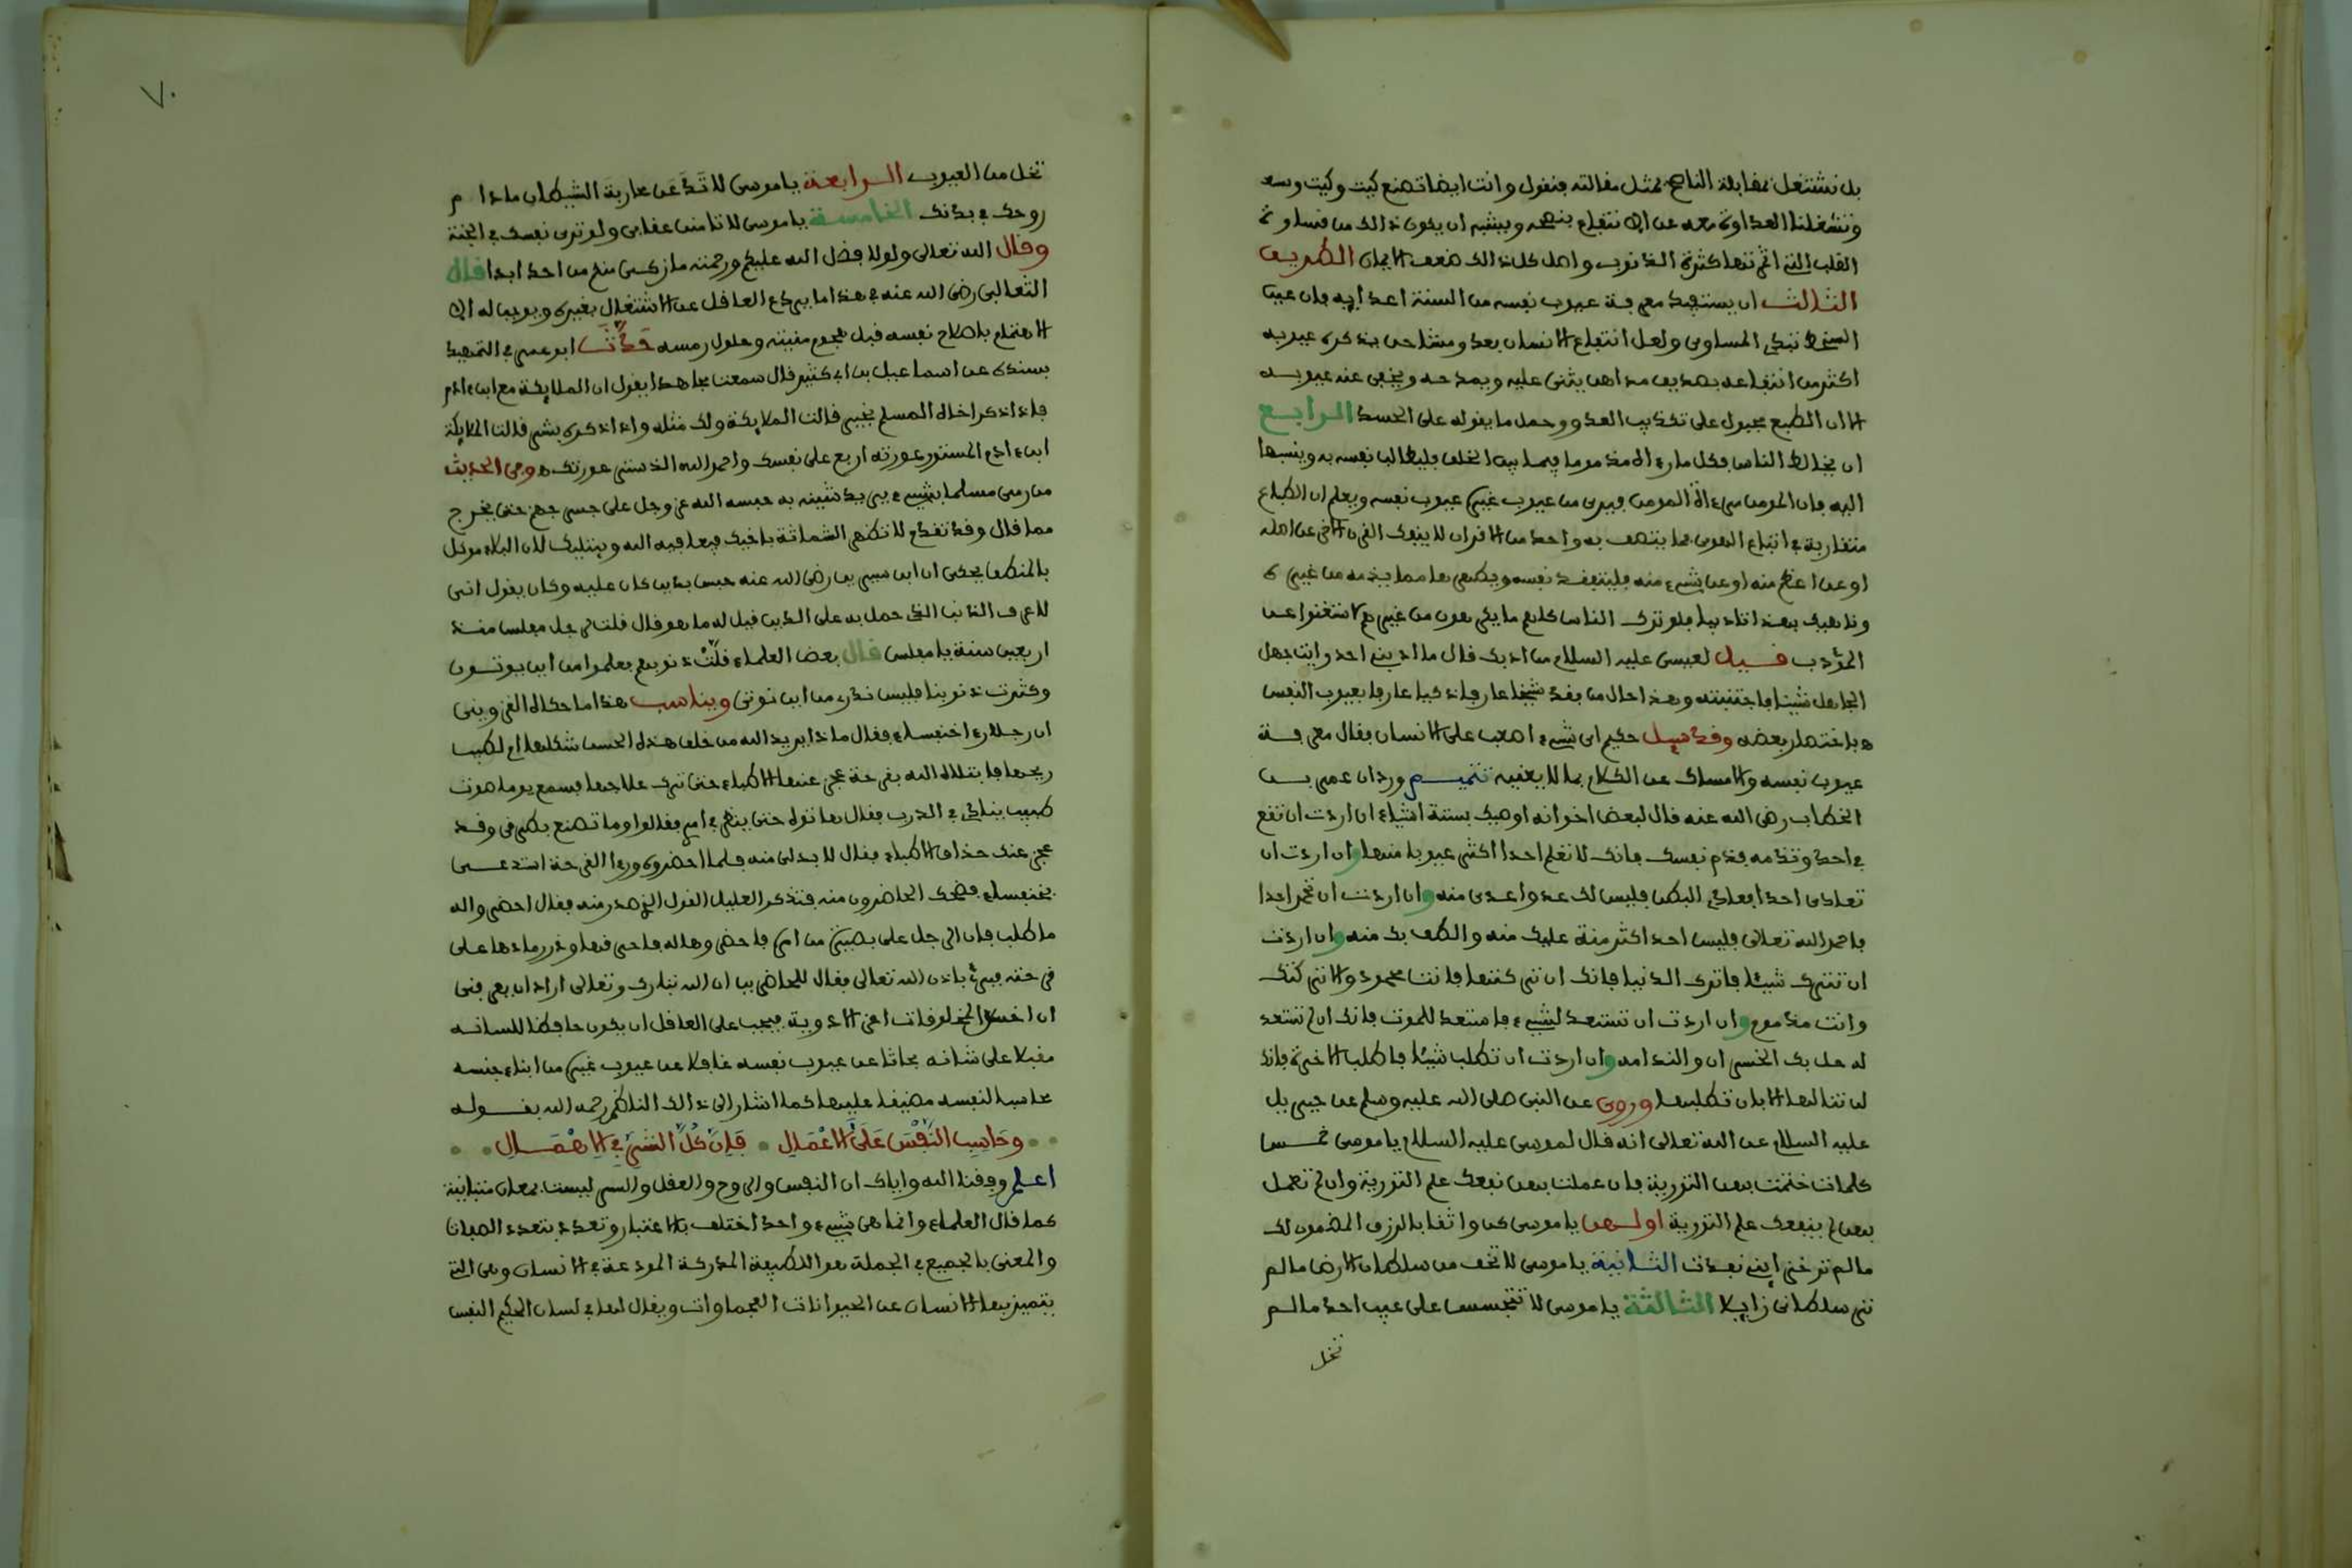 بل نشتغل بمقابلة الناصح بمثل مقالته فنقول وانت ايضا تصنع كيت وكيت
وتشغلنا العداوة معه عن الانتفاع بنصحه ويشبه ان يكون ذالك من قساوة
القلب التي اثمرتها كثرة الذنوب واصل كل ذالك ضعف الايمان الطريق
الثالث ان يستفيد معرفة عيوب نفسه من السنة اعدايه فان عين
السخط تبدي المساوي ولعل انتفاع الانسان بعدو مشاحن يذكره عيوبه
اكثر من انتفاعه بصديق مداهن يثني عليه ويمدحه ويخفي عنه عيوبه
الا ان الطبع مجبول على تكذيب العدو وحمل ما يقوله على الحسد الرابع
ان يخالط الناس فكل ما رءاه مذموما فيما بين الخلق فليطالب نفسه به وينسبها
اليه فان المومن مرءاة المومن فيرى من عيوب غيره عيوب نفسه ويعلم ان الطباع
متقاربة في اتباع الهوى فما يتصف به واحد من الاقران لا ينفك القرن الاخر عن اصله
او عن اعظم منه او عن شيء منه فليتفقد نفسه ويطهرها مما يذمه من غيره
وناهيك بهذا تاديبا فلو ترك الناس كلهم ما يكرهون من غيرهم لاستغنوا عن
المؤدب قيل لعيسى عليه السلام من ادبك قال ما ادبني احد رايت جهل
الجاهل شينا فاجتنبته وهذا حال من فقد شيخا عارفا ذكيا عارفا بعيوب النفس
ه باختصار بعضه وقد سيل حكيم اي شيء اصعب على الانسان فقال معرفة
عيوب نفسه والامساك عن الكلام بما لا يعنيه تتميم ورد ان عمر بن
الخطاب رضي الله عنه قال لبعض اخوانه اوصيك بستة اشياء ان اردت ان تقع
في احد وتذمه فذم نفسك فانك لا تعلم احدا اكثر عيوبا منها وان اردت ان
تعادي احدا فعادي البطن فليس لك عدو اعدى منه وان اردت ان تحمد احدا
فاحمد الله تعالى فليس احد اكثر منة عليك منه والطف بك منه وان اردت
ان تترك شيئا فاترك الدنيا فانك ان تركتها فانت محمود والا تركتك
وانت مذموم وان اردت ان تستعد لشيء فاستعد للموت فانك ان لم تستعد
له حل بك الخسران والندامه وان اردت ان تطلب شيئا فاطلب الاخرة فانك
لن تنالها الا بان تطلبها وروي عن النبي صلى الله عليه وسلم عن جبريل
عليه السلام عن الله تعالى انه قال لموسى عليه السلام يا موسى خمس
كلمات ختمت بهن التورية فان عملت بهن نفعك علم التورية وان لم تعمل
بهن لم ينفعك علم التورية اولهن يا موسى كن واثقا بالرزق المضمون لك
ما لم تر خزايني نفدت الثانية يا موسى لا تخف من سلطان الارض ما لم
تر سلطاني زايلا الثالثة يا موسى لا تتجسس على عيب احد ما لم
تخل
٧٠
تخل من العيوب الرابعة يا موسى لا تدع عن محاربة الشيطان ما دام
روحك في بدنك الخامسة يا موسى لا تامن عقابي ولو ترى نفسك في الجنة
وقال الله تعالى ولولا فضل الله عليكم ورحمته ما زكى منكم من احد ابدا قال
الثعالبي رضي الله عنه في هذا ما يردع العاقل عن الاشتغال بغيره ويوجب له
الاهتمام باصلاح نفسه قبل هجوم منيته وحلول رمسه حدث ابو عمر في التمهيد
بسنده عن اسماعيل بن كثير قال سمعت مجاهدا يقول ان الملايكة مع ابن ءادم
فاذا ذكر اخاه المسلم بخير قالت الملايكة ولك مثله واذا ذكره بشر قالت الملايكة
ابن ءادم المستور عورته اربع على نفسك واحمد الله الذي ستر عورتك ه وفي الحديث
من رمى مسلما بشيء يريد شينه به حبسه الله عز وجل على جسر جهنم حتى يخرج
مما قال وقد تقدم لا تظهر الشماتة باخيك فيعافيه الله ويبتليك لان البلاء موكل
بالمنطق يحكى ان ابن سيرين رضي الله عنه حبس بدين كان عليه وكان يقول اني
لاعرف الذنب الذي حمل به على الدين قيل له ما هو قال قلت لرجل مفلس منذ
اربعين سنة يا مفلس قال بعض العلماء قلت ذنوبهم فعلموا من اين يوتون
وكثرت ذنوبنا فليس ندري من اين نوتى ويناسب هذا ما حكاه القزويني
ان رجلا رءا خنفساء فقال ماذا يريد الله من خلق هذه الحسن شكلها ام لطيب
ريحها فابتلاه الله بقرحة عجز عنها الاطباء حتى ترك علاجها فسمع يوما صوت
طبيب ينادي في الدرب فقال هاتوه حتى ينظر في امري فقالوا وما تصنع بطرقي وقد
عجز عنك حذاق الاطباء فقال لا بد لي منه فلما احضروه ورءا القرحة استدعى
بخنفساء فضحك الحاضرون منه فتذكر العليل القول الذي صدر منه فقال احضروا له
ما طلب فان الرجل على بصيرة من امره فاحضروها له فاحرقها وذر رمادها على
قرحته فبرئ باذن الله تعالى فقال للحاضرين ان الله تبارك وتعالى اراد ان يعرفني
ان اخس المخلوقات اعز الادوية فيجب على العاقل ان يكون حافظا للسانه
مقبلا على شانه باحثا عن عيوب نفسه غافلا عن عيوب غيره من ابناء جنسه
محاسبا لنفسه مضيقا عليها كما اشار الى ذالك الناظم رحمه الله بقوله
وحاسب النفس على الاعمال فان كل الشر في الاهمال
اعلم وفقنا الله واياك ان النفس والروح والعقل والسر ليست بمعان متباينة
كما قال العلماء وانما هي شيء واحد اختلف بالاعتبار وتعدد بتعدد الصفات
والمعنى بالجميع في الجملة هو اللطيفة المدركة المودعة في الانسان وهي التي
يتميز بها الانسان عن الحيوانات العجماوات ويقال لها في لسان الحكيم النفس